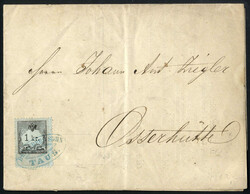 Herrn Johann Ant Ziegler
Osserhütte
1 kr.
TAUS